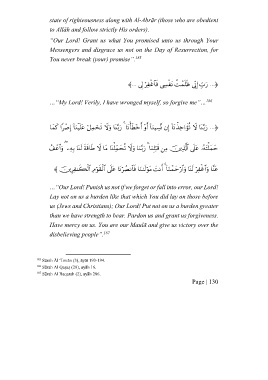 state of righteousness along with Al-Abrâr (those who are obedient
to Allâh and follow strictly His orders).
"Our Lord! Grant us what You promised unto us through Your
Messengers and disgrace us not on the Day of Resurrection, for
You never break (your) promise".¹⁸⁵
﴿... رَبِّ إِنِّي ظَلَمْتُ نَفْسِي فَٱغْفِرْ لِي ...﴾
…"My Lord! Verily, I have wronged myself, so forgive me"…¹⁸⁶
﴿... رَبَّنَا لَا تُؤَاخِذْنَآ إِن نَّسِينَآ أَوْ أَخْطَأْنَا ۚ رَبَّنَا وَلَا تَحْمِلْ عَلَيْنَآ إِصْرًا كَمَا
حَمَلْتَهُۥ عَلَى ٱلَّذِينَ مِن قَبْلِنَا ۚ رَبَّنَا وَلَا تُحَمِّلْنَا مَا لَا طَاقَةَ لَنَا بِهِۦ ۖ وَٱعْفُ
عَنَّا وَٱغْفِرْ لَنَا وَٱرْحَمْنَآ ۚ أَنتَ مَوْلَىٰنَا فَٱنصُرْنَا عَلَى ٱلْقَوْمِ ٱلْكَٰفِرِينَ ﴾
…"Our Lord! Punish us not if we forget or fall into error, our Lord!
Lay not on us a burden like that which You did lay on those before
us (Jews and Christians); Our Lord! Put not on us a burden greater
than we have strength to bear. Pardon us and grant us forgiveness.
Have mercy on us. You are our Maulâ and give us victory over the
disbelieving people".¹⁸⁷
(3), ayâh 193-194.
¹⁸⁶ Sûrah Al-Qasas (28), ayâh 16.
¹⁸⁷ Sûrah Al-Baqarah (2), ayâh 286.
Page | 130